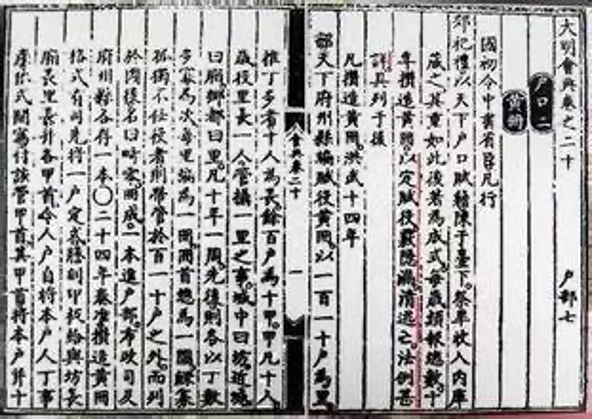 大明會典卷之二十　戶部七
戶口二
黃冊
國初令中書省臣凡行
郊祀禮以天下戶口賦籍陳于臺下祭畢收入內庫
藏之其重如此後著為成式每歲類報總數十
年攢造黃冊以定賦役嚴隱漏逃之法例甚
詳具列于後
凡攢造黃冊洪武十四年
詔天下府州縣編賦役黃冊以一百一十戶為里
會典卷二十　一
推丁多者十人為長餘百戶為十甲甲凡十人
歲役里長一人管攝一里之事城中曰坊近城
曰廂鄉都曰里凡十年一周先後則各以丁數
多寡為次每里編為一冊冊首總為一圖鰥寡
孤獨不任役者則帶管於百一十戶之外而列
於圖後名曰畸零冊成一本進戶部布政司及
府州縣各存一本○二十四年奏准攢造黃冊
格式有司先將一戶定式謄刻印板給與坊長
廂長里長并各甲首令人戶自將本戶人丁事
產依式開寫付該管甲首其甲首將本戶并十